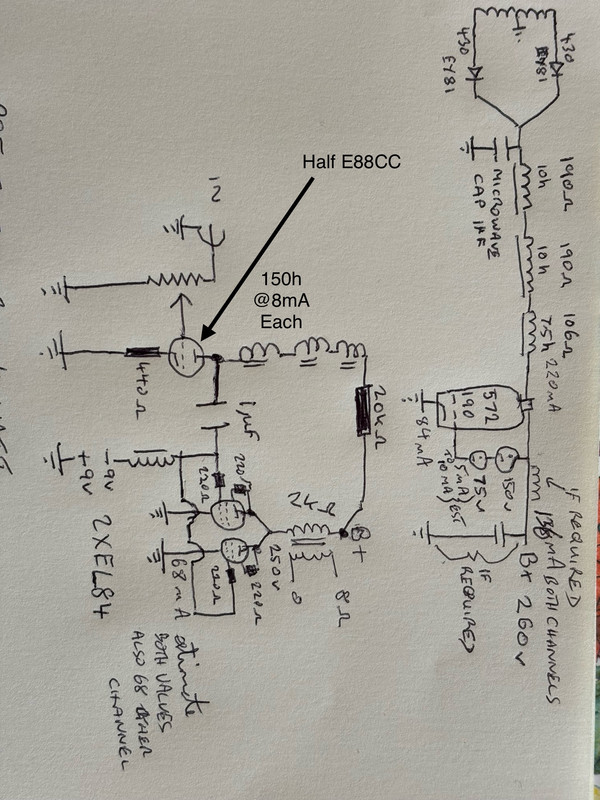 430
EY81
430
EY81
190Ω
10h
MICROWAVE
CAP 1µF
190Ω
10h
106Ω
7.5h 220mA
572
190
84mA
150v
75v
5mA
10mA
EST
IF REQUIRED
136mA BOTH CHANNELS
B+ 260v
IF
REQUIRED
Half E88CC
150h
@8mA
Each
IN
440Ω
20kΩ
1µF
B+
8Ω
0
250v
220Ω
220Ω
220Ω
220Ω
-9v
+9v
2XEL84
68mA estimate
BOTH VALVES
ALSO 68 OTHER
CHANNEL